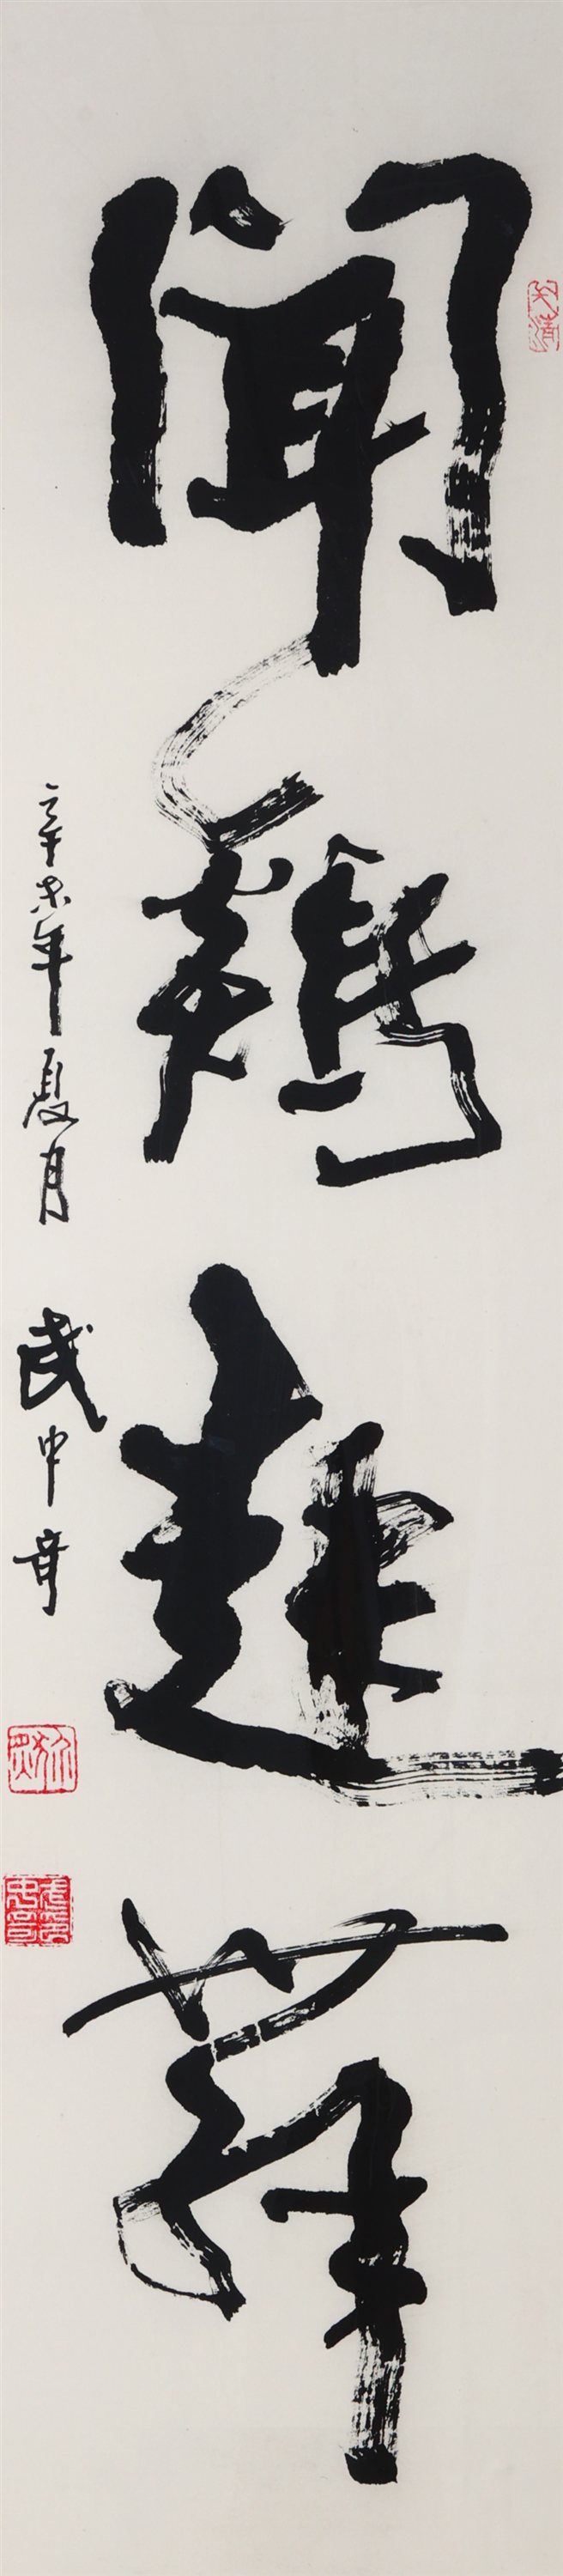 聞雞起舞
辛未年夏月 武中奇